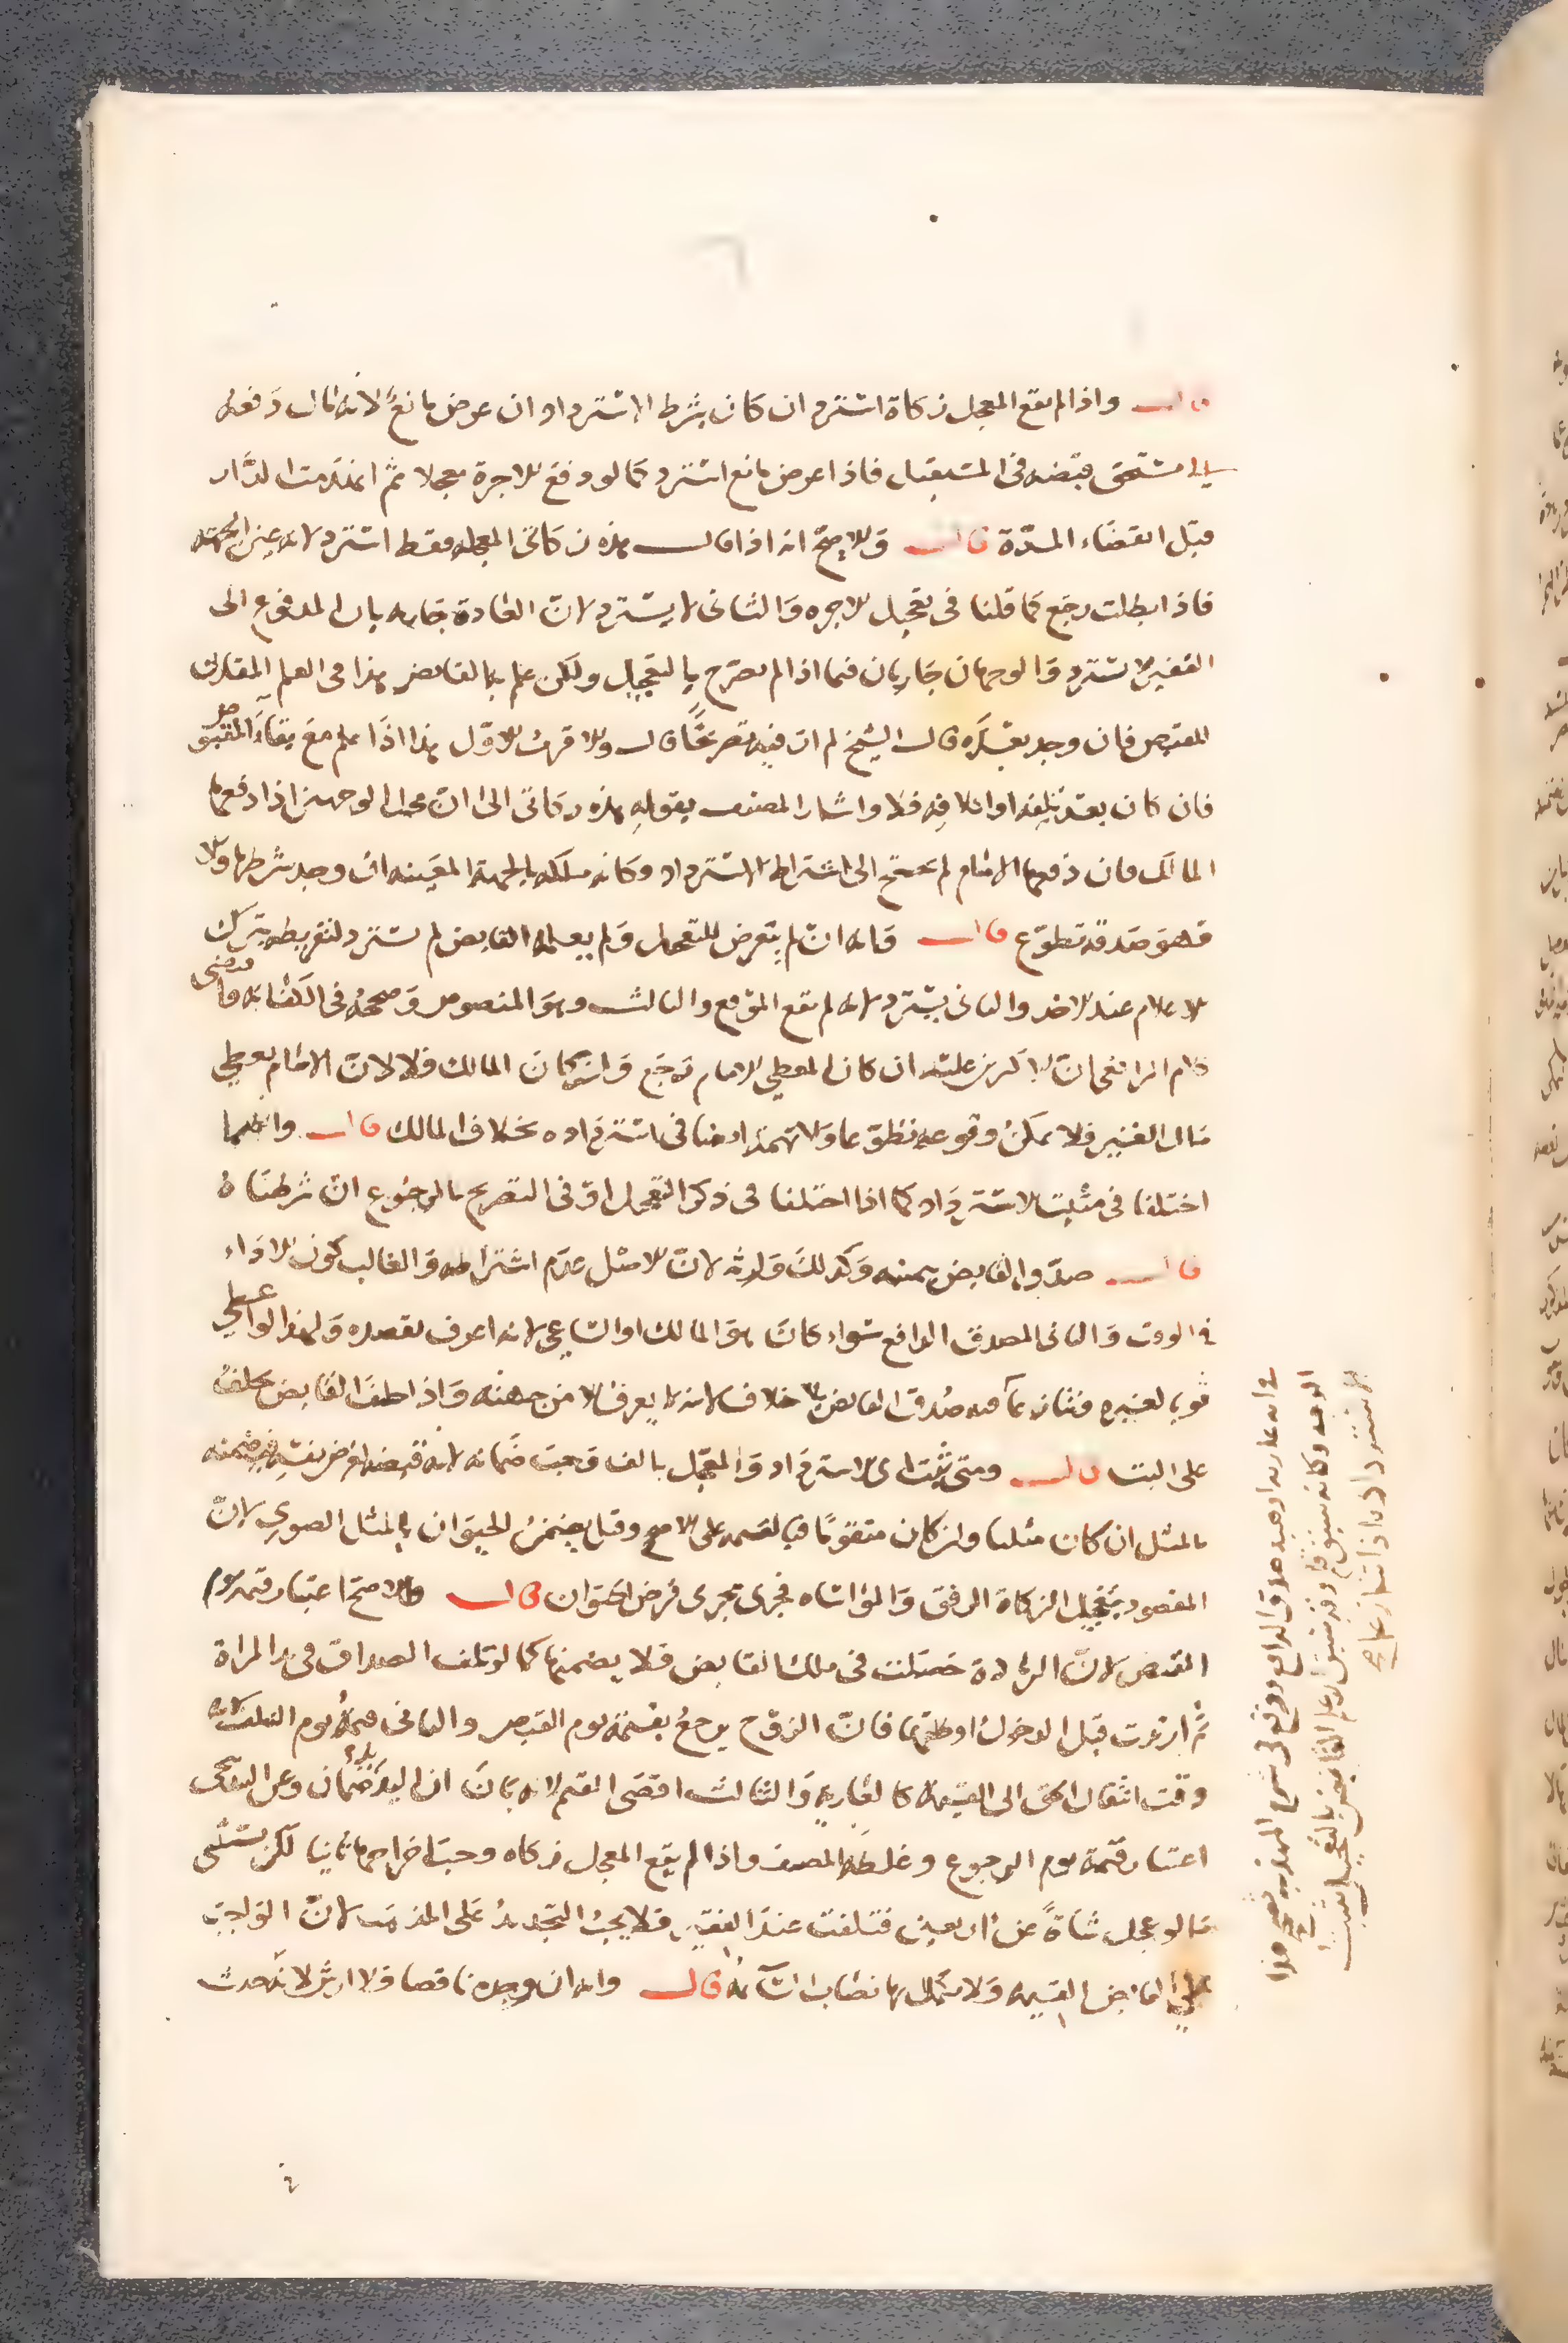 قال واذا لم يقع المعجل زكاة استرد ان كان بشرط الاسترداد ان عرض مانع لانه مال دفعه
لما يستحق قبضه في المستقبل فاذا عرض مانع استرد كما لو دفع الاجرة معجلا ثم انهدمت الدار
قبل انقضاء المدة قال والاصح انه اذا قال هذه زكاتي المعجلة فقط استرد لانه عين الجهة
فاذا بطلت رجع كما قلنا في تعجيل الاجره والثاني لا يسترد لان العادة جاريه بان المدفوع الى
الفقير لا يسترد والوجهان جاريان فيما اذا لم يصرح بالتعجيل ولكن علم به القابض هذا في العلم المقارن
للقبض فان وجد بعده قال الشيخ لم ار فيه تصريحا قال والاقرب الاول هذا اذا علم مع بقاء المقبوض
فان كان بعد تلفه او اتلافه فلا واشار المصنف بقوله هذه زكاتي الى ان محل الوجهين اذا دفعها
المالك فان دفعها الامام لم يحتج الى اشتراط الاسترداد وكانه ملكه بالجهة المعينه ان وجد شرطها والا
فهو صدقة تطوع قال وانه ان لم يتعرض للتعجيل ولم يعلمه القابض لم يسترد لتفريطه بترك
الاعلام عند الاخذ والثاني يسترد لانه لم يقع الموقع والثالث وهو المنصوص وصححه في الكفايه وقال مقتضى
كلام الرافعي ان الاكثرين عليه ان كان المعطي الامام رجع وان كان المالك فلا لان الامام يعطي
مال الغير فلا يمكن وقوعه تطوعا ولا تهمة ايضا في استرداده بخلاف المالك قال وانهما لو
اختلفا في مثبت الاسترداد كما اذا اختلفا في ذكر التعجيل او في التصريح بالرجوع ان شرطناه
قال صدق القابض بيمينه وكذلك وارثه لان الاصل عدم اشتراطه والغالب كون الاداء
في الوقت والثاني المصدق الدافع سواء كان هو المالك او الساعي لانه اعرف بقصده ولهذا لو اعطى
ثوبا لغيره
صدق القابض بلا خلاف لانه لا يعرف الا من جهته واذا حلف القابض حلف
على البت قال ومتى ثبت اي الاسترداد والمعجل تالف وجب ضمانه لانه قبضه لغرض نفسه فيضمنه
بالمثل ان كان مثليا وان كان متقوما فبالقيمة على الاصح وقيل يضمن الحيوان بالمثل الصوري لان
المقصود بتعجيل الزكاة الرفق والمواساه فجرى مجرى قرض الحيوان قال والاصح اعتبار قيمة يوم
القبض لان الزيادة حصلت في ملك القابض فلا يضمنها كما لو تلف الصداق في يد المراة
ثم ارتدت قبل الدخول او طلقها فان الزوج يرجع بقيمته يوم القبض والثاني قيمة يوم التلف لانه
وقت انتقال الحق الى القيمة كالعاريه والثالث اقصى القيم لانه بان ان اليد يد ضمان
اعتبار قيمة يوم الرجوع وغلطه المصنف واذا لم يقع المعجل زكاه وجب اخراجها ثانيا لكن يستثنى
ما لو عجل شاة عن اربعين فتلفت عند الفقير فلا يجب التجديد على المذهب لان الواجب
على القابض القيمة ولا يكمل بها نصاب السائمة قال وانه ان وجده ناقصا فلا ارش لانه حدث
الاسترداد اذا تنازعا